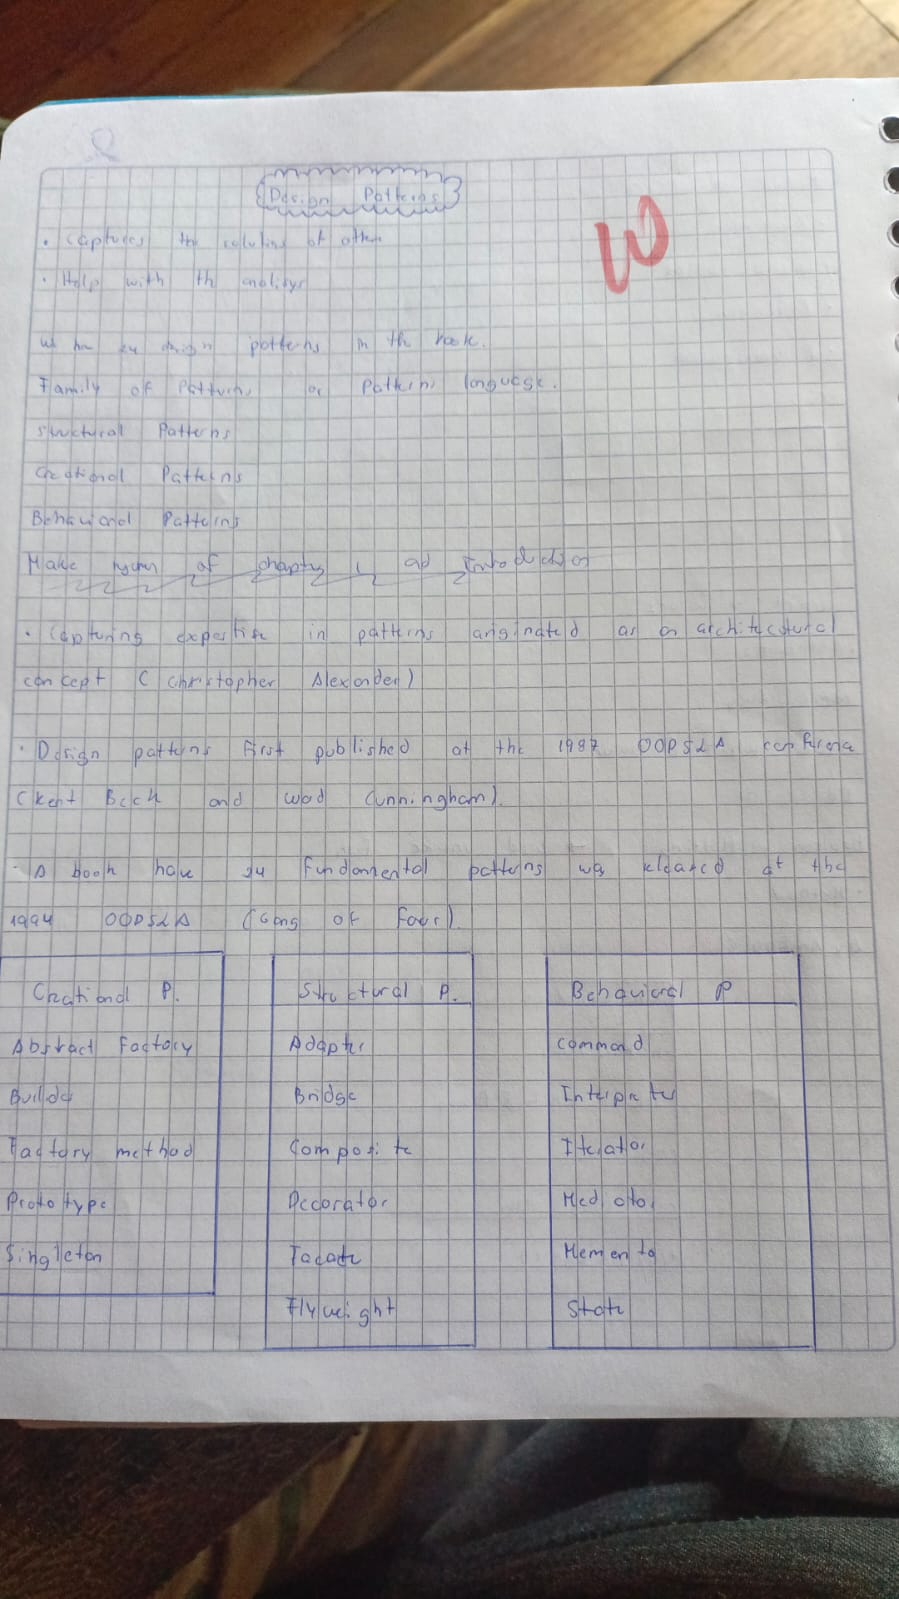 Design Patterns
W
• Captures the solutions of other
• Help with th analisys
24 design patterns in the book.
Family of Patterns or Pattern language.
Structural Patterns
Creational Patterns
Behavioral Patterns
Make of chapter 1 Introduction
• Capturing expertise in patterns originated as an architectural
concept (Christopher Alexander)
• Design patterns First published at the 1987 OOPSLA
(Kent Beck and Wad Cunningham).
• A book have 24 Fundamental patterns was at the
1994 OOPSLA (Gang of Four).
Creational P.
Abstract Factory
Builder
Factory method
Prototype
Singleton
Structural P.
Adapter
Bridge
Composite
Decorator
Facade
Flyweight
Behavioral P
Command
Interpreter
Iterator
Mediator
Memento
State